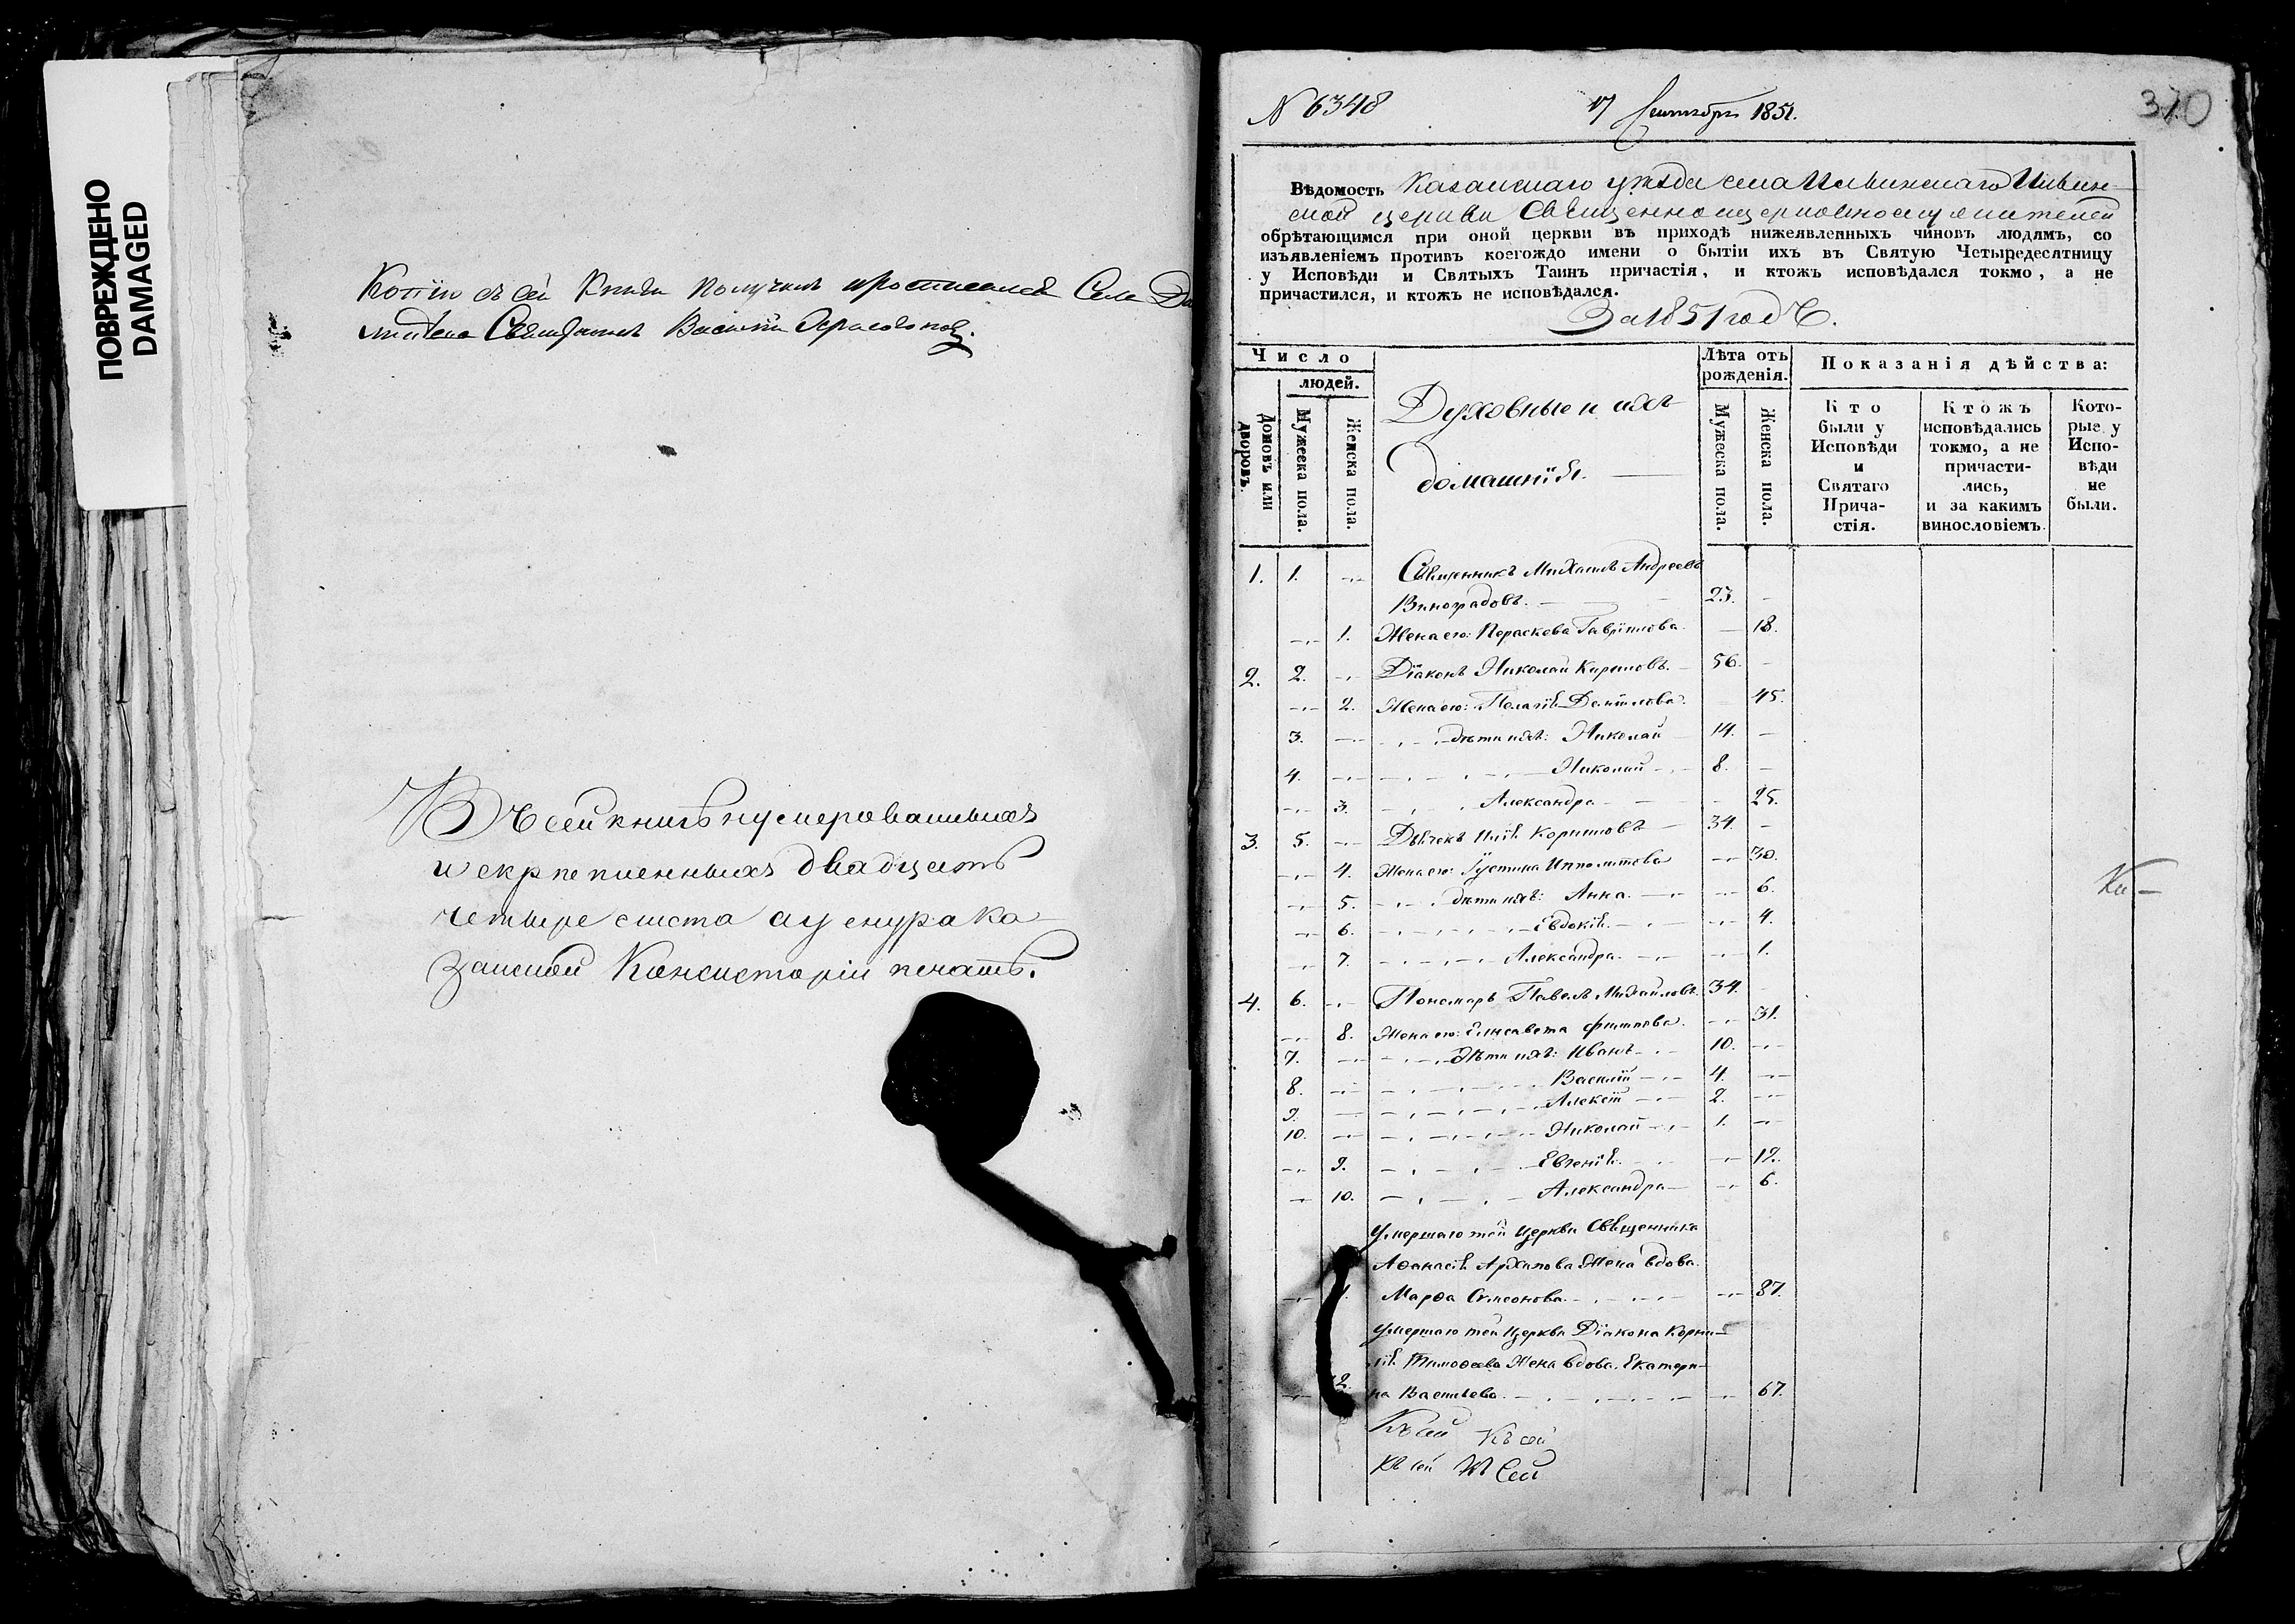 ПОВРЕЖДЕНО
DAMAGED
Копiю съ сей Книги получилъ Села
Священникъ Василiй
Въ сей книгѣ нумерованныхъ
и скрепленныхъ двадцать
четыре листа а у снура Ка-
занской Консисторiи печать.
N 6348 17 Сентября 1851. 370
Вѣдомость Казанскаго уѣзда села
церкви Священноцерковнослужителей
обрѣтающимся при оной церкви въ приходѣ нижеявленныхъ чиновъ людямъ, со
изъявленiемъ противъ коегождо имени о бытiи ихъ въ Святую Четыредесятницу
у Исповѣди и Святыхъ Таинъ причастiя, и ктожъ исповѣдался токмо, а не
причастился, и ктожъ не исповѣдался.
За 1851 годъ.
Число
людей.
Домовъ или дворовъ.
Мужеска пола.
Женска пола.
Духовные и ихъ
домашнiя.
Лѣта отъ
рожденiя.
Мужеска пола.
Женска пола.
Показанiя дѣйства:
Кто
были у
Исповѣди
и
Святаго
Прича-
стiя.
Ктожъ
исповѣдались
токмо, а не
причасти-
лись,
и за какимъ
винословiемъ.
Кото-
рые у
Испо-
вѣди
не
были.
1. 1. Священникъ Михаилъ Андреевъ
Виноградовъ. 23.
1. Жена его: Параскева Гаврiилова 18.
2. 2. Дiаконъ Николай Кириловъ. 56.
2. Жена его: Пелагiя Данiилова. 45.
3. дѣти ихъ: Николай 14.
4. Николай 8.
3. Александра 25.
3. 5. Дьячекъ Илiя Корниловъ 34.
4. Жена его: Iустина Ипполитова 30.
5. дѣти ихъ: Анна 6.
6. Евдокiя 4.
7. Александра 1.
4. 6. Пономарь Павелъ Михайловъ 34.
8. Жена его: Елисавета Филипова. 31.
7. Дѣти ихъ: Иванъ 10.
8. Василiй 4.
9. Алексiй 2.
10. Николай 1.
9. Евгенiя 12.
10. Александра 6.
Умершаго той Церкви Священника
Аѳанасiя Архипова Жена вдова
1. Марѳа Симеонова 87.
Умершаго той Церкви Дiакона Корни-
лiя Тимоѳеева Жена вдова Екатери-
2. на Васильева 67.
Къ сей Къ сей
Къ сей Къ Сей
Ка-